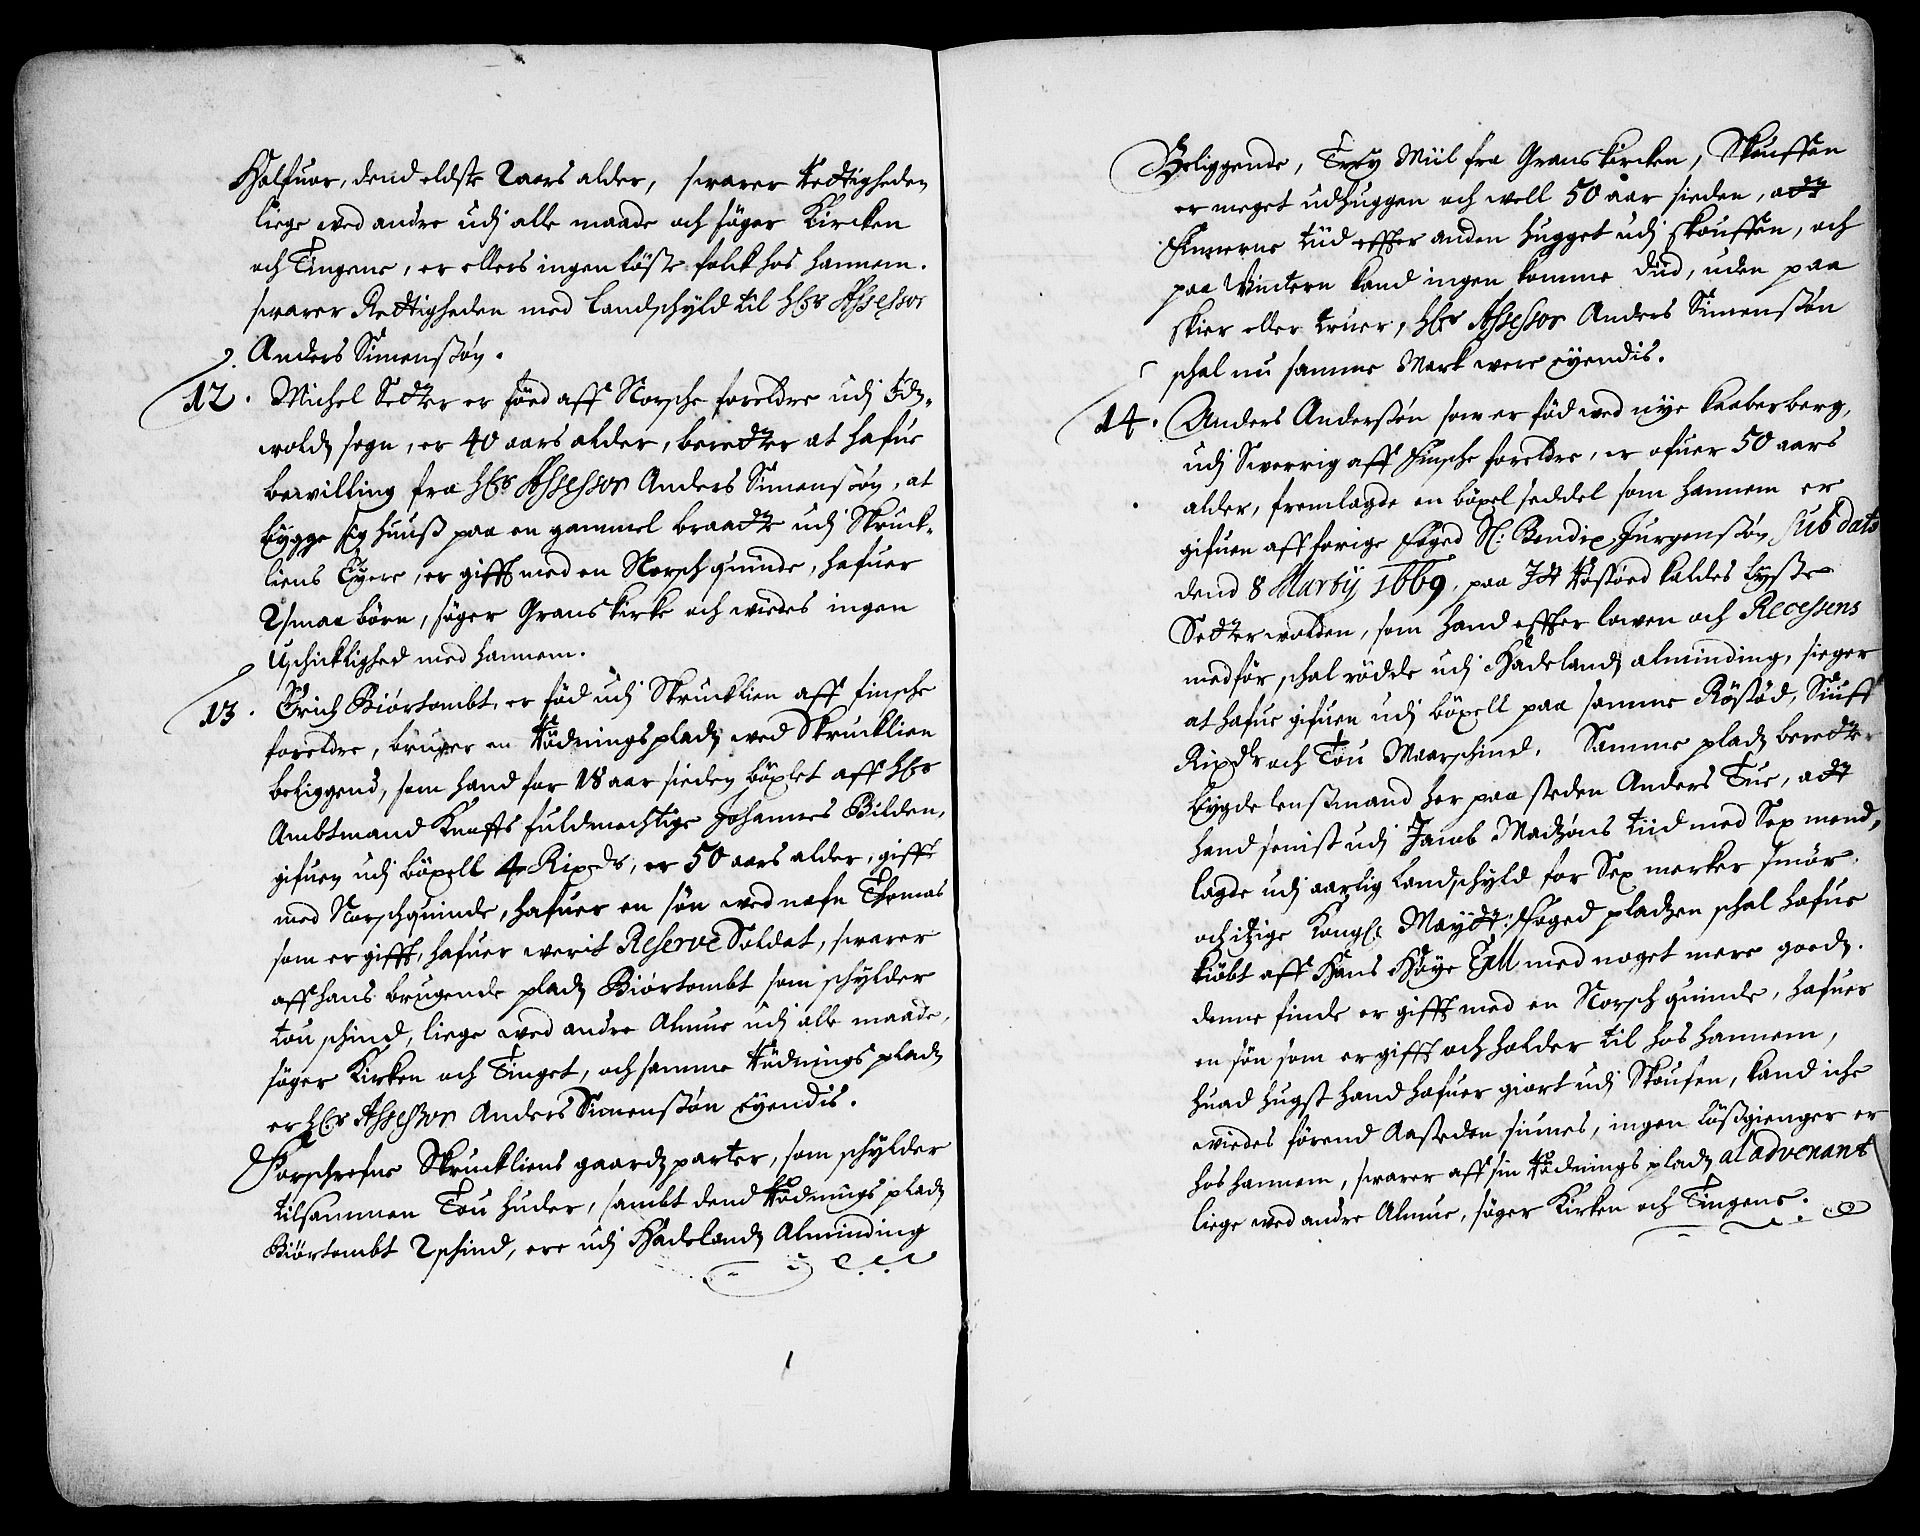 Halfuor, dend eldste 2 aars alder, swarer Rettigheden
liege wed andre udj alle maade och søger Kircken
och Tingene, er ellers ingen løste folck hos hannem.
swarer Rettigheden med Landschyld til Hr Assessor
Anders Simensøn.
12. Michel Setter er føed aff Norsche foreldre udj Id,,
wolds sogn, er 40 aars alder, beretter at hafue
bewilling fra Hr Assessor Anders Simensøn, at
bygge sig huuss paa en gammel braatte udj Skruck,,
liens Eyere, er gifft med en Norsch quinde, hafuer
2 smaa børn, søger Grans kirke och wides ingen
Uschicklighed med hannem.
13. Erich Biørtombt, er fød udj Skrucklien aff finsche
foreldre, bruger en Rødnings plads wed Skrucklien
beliggend, som hand for 18 aar sieden bøxlet aff Hr
Ambtmand Knoffs fuldmechtige Johannes Bilden,
gifuen udj bøxell 4 Rixdr, er 50 aars alder, gifft
med Norsch quinde, hafuer en søn wed nafn Thomas
som er gifft, hafuer werit Reserve Soldat, swarer
aff hans brugende plads Biørtombt som schylder
tou schind, liege wed andre Almue udj alle maade,
søger Kirken och Tinget, och samme Rødnings plads
er Hr Assessor Anders Simensøn Eyendis.
Forschrefne Skruckliens gaards parter, som schylder
tilsammen Tou huder, sambt dend Rødnings plads
Biørtombt 2 schind, ere udj Hadelands Alminding
Beliggende, Trey Miil fra Grans kircken, Skouffen
er meget udhuggen och well 50 aar sieden, att
Finnerne tiid effter anden hugget udj skouffen, och
paa Vintern kand ingen komme did, uden paa
skier eller truer, Hr Assessor Anders Simensøn
schal nu samme Mark were eyendis.
14. Anders Andersøn som er fød wed nye kaaberberg,
udj Swerrig aff Finsche foreldre, er ofuer 50 aars
alder, fremlagde en bøxel seddel som hannem er
gifuen aff forige Foged Sl: Bendix Jurgensøn sub dato
dend 8 Martij 1669. paa It Røssøed kaldes Lysse
Setter wolden, som hand effter lowen och Recessens
medfør, schal rødde udj Hadelands alminding, sieger
at hafue gifuen udj bøxell paa samme Røssød, Siuff
Rixdr och Tou Maarschind. Samme plads beretter
bygde lensmand her paa steden Anders Tue, att
hand senist udj Jacob Madzøns tiid med Sex mend,
lagde udj aarlig Landschyld for Sex marker smør.
och itzige Kongl: Maytt: Foged pladsen schal hafue
kiøbt aff Hans Høye Ex[cell med noget mere goeds.
denne finde er gifft med en Norsch quinde, hafuer
en søn som er gifft och holder til hos hannem,
huad hugst hand hafuer giort udj Skoufen, kand iche
wiedes førend Aasteden siunes, ingen løssgienger er
hos hannem, swarer aff sin Rødnings plads al advenant
liege wed andre Almue, søger Kirken och Tingene.